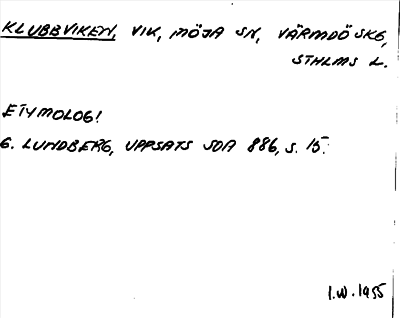 KLUBBVIKEN, VIK, MÖJA SN, VÄRMDÖ SKG,
STHLMS L.
ETYMOLOGI
G. LUNDBERG, UPPSATS SOA 886, S. 15.
I.W. 1955